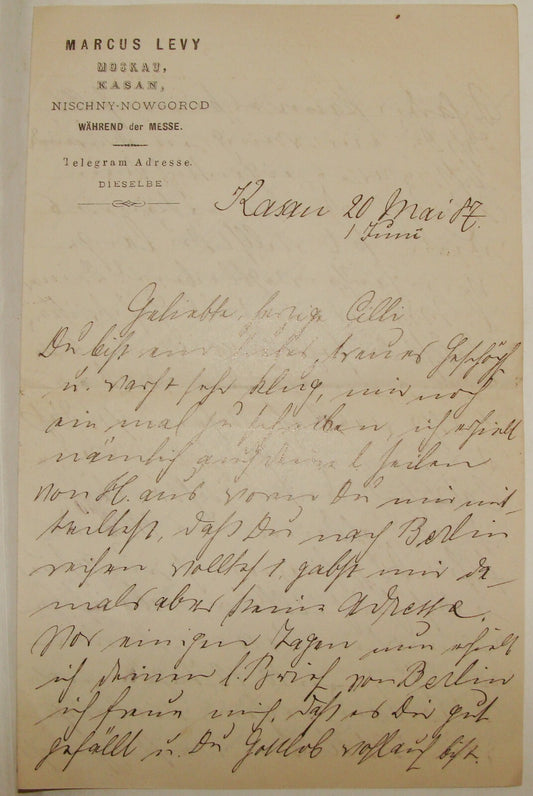 MARCUS LEVY
MOSKAU,
KASAN,
NISCHNY-NOWGOROD
WÄHREND der MESSE.
Telegram Adresse.
DIESELBE
Kasan 20 Mai 87.
1 Juni
Geliebte, herzige Cilli
Du bist ein liebes, treues Geschöpf
u. warst sehr klug, mir noch
ein mal zu schreiben, ich erhielt
nämlich auch deine l. Zeilen
von H. aus worin Du mir mit-
teiltest, daß Du nach Berlin
reisen wolltest, gabst mir da-
mals aber keine Adresse.
Vor einigen Tagen nun erhielt
ich deinen l. Brief von Berlin
ich freue mich, daß es Dir gut
gefällt u. Du Gottlob wohlauf bist.